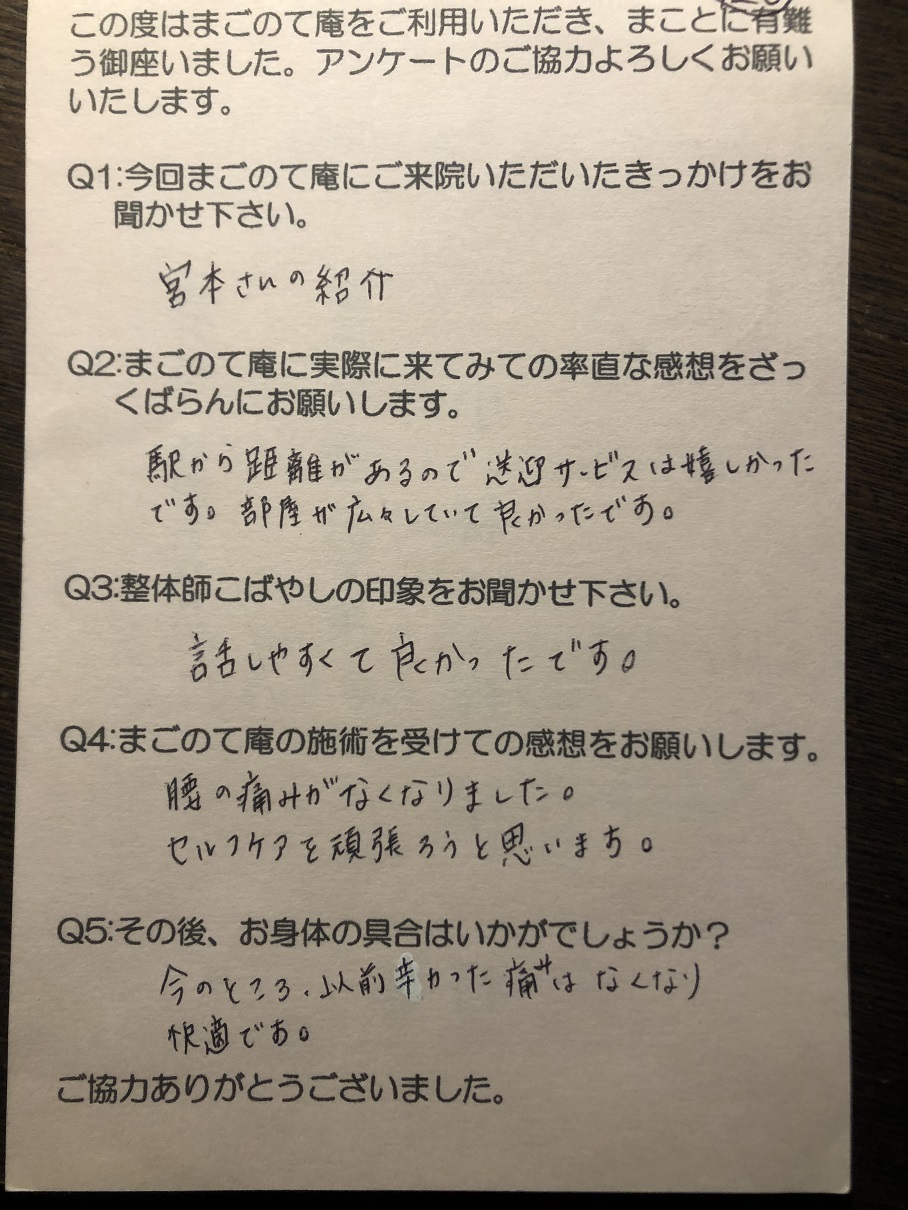 この度はまごのて庵をご利用いただき、まことに有難
う御座いました。アンケートのご協力よろしくお願い
いたします。
Q1:今回まごのて庵にご来院いただいたきっかけをお
聞かせ下さい。
宮本さんの紹介
Q2:まごのて庵に実際に来てみての率直な感想をざっ
くばらんにお願いします。
駅から距離があるので送迎サービスは嬉しかった
です。部屋が広々していて良かったです。
Q3:整体師こばやしの印象をお聞かせ下さい。
話しやすくて良かったです。
Q4:まごのて庵の施術を受けての感想をお願いします。
腰の痛みがなくなりました。
セルフケアを頑張ろうと思います。
Q5:その後、お身体の具合はいかがでしょうか？
今のところ、以前辛かった痛みはなくなり
快適です。
ご協力ありがとうございました。